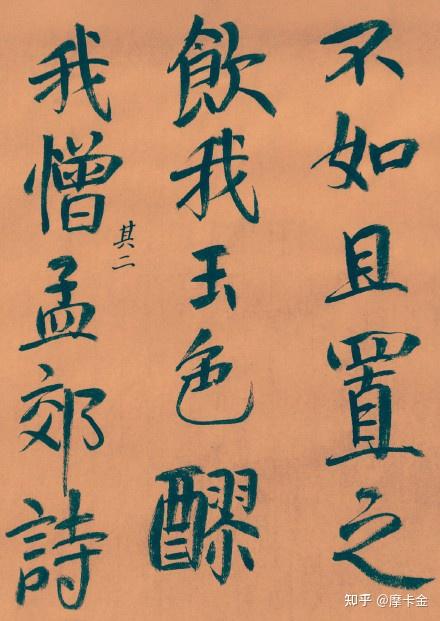 不如且置之
飲我玉色醪
其二
我憎孟郊詩
知乎 @摩卡金